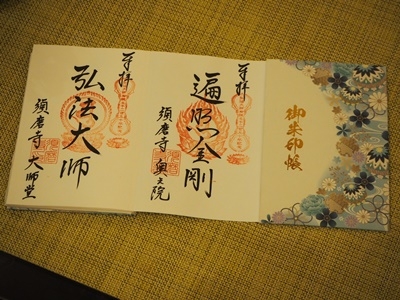 御朱印帳
奉拝
遍照金剛
須磨寺奥之院
奉拝
弘法大師
須磨寺大師堂